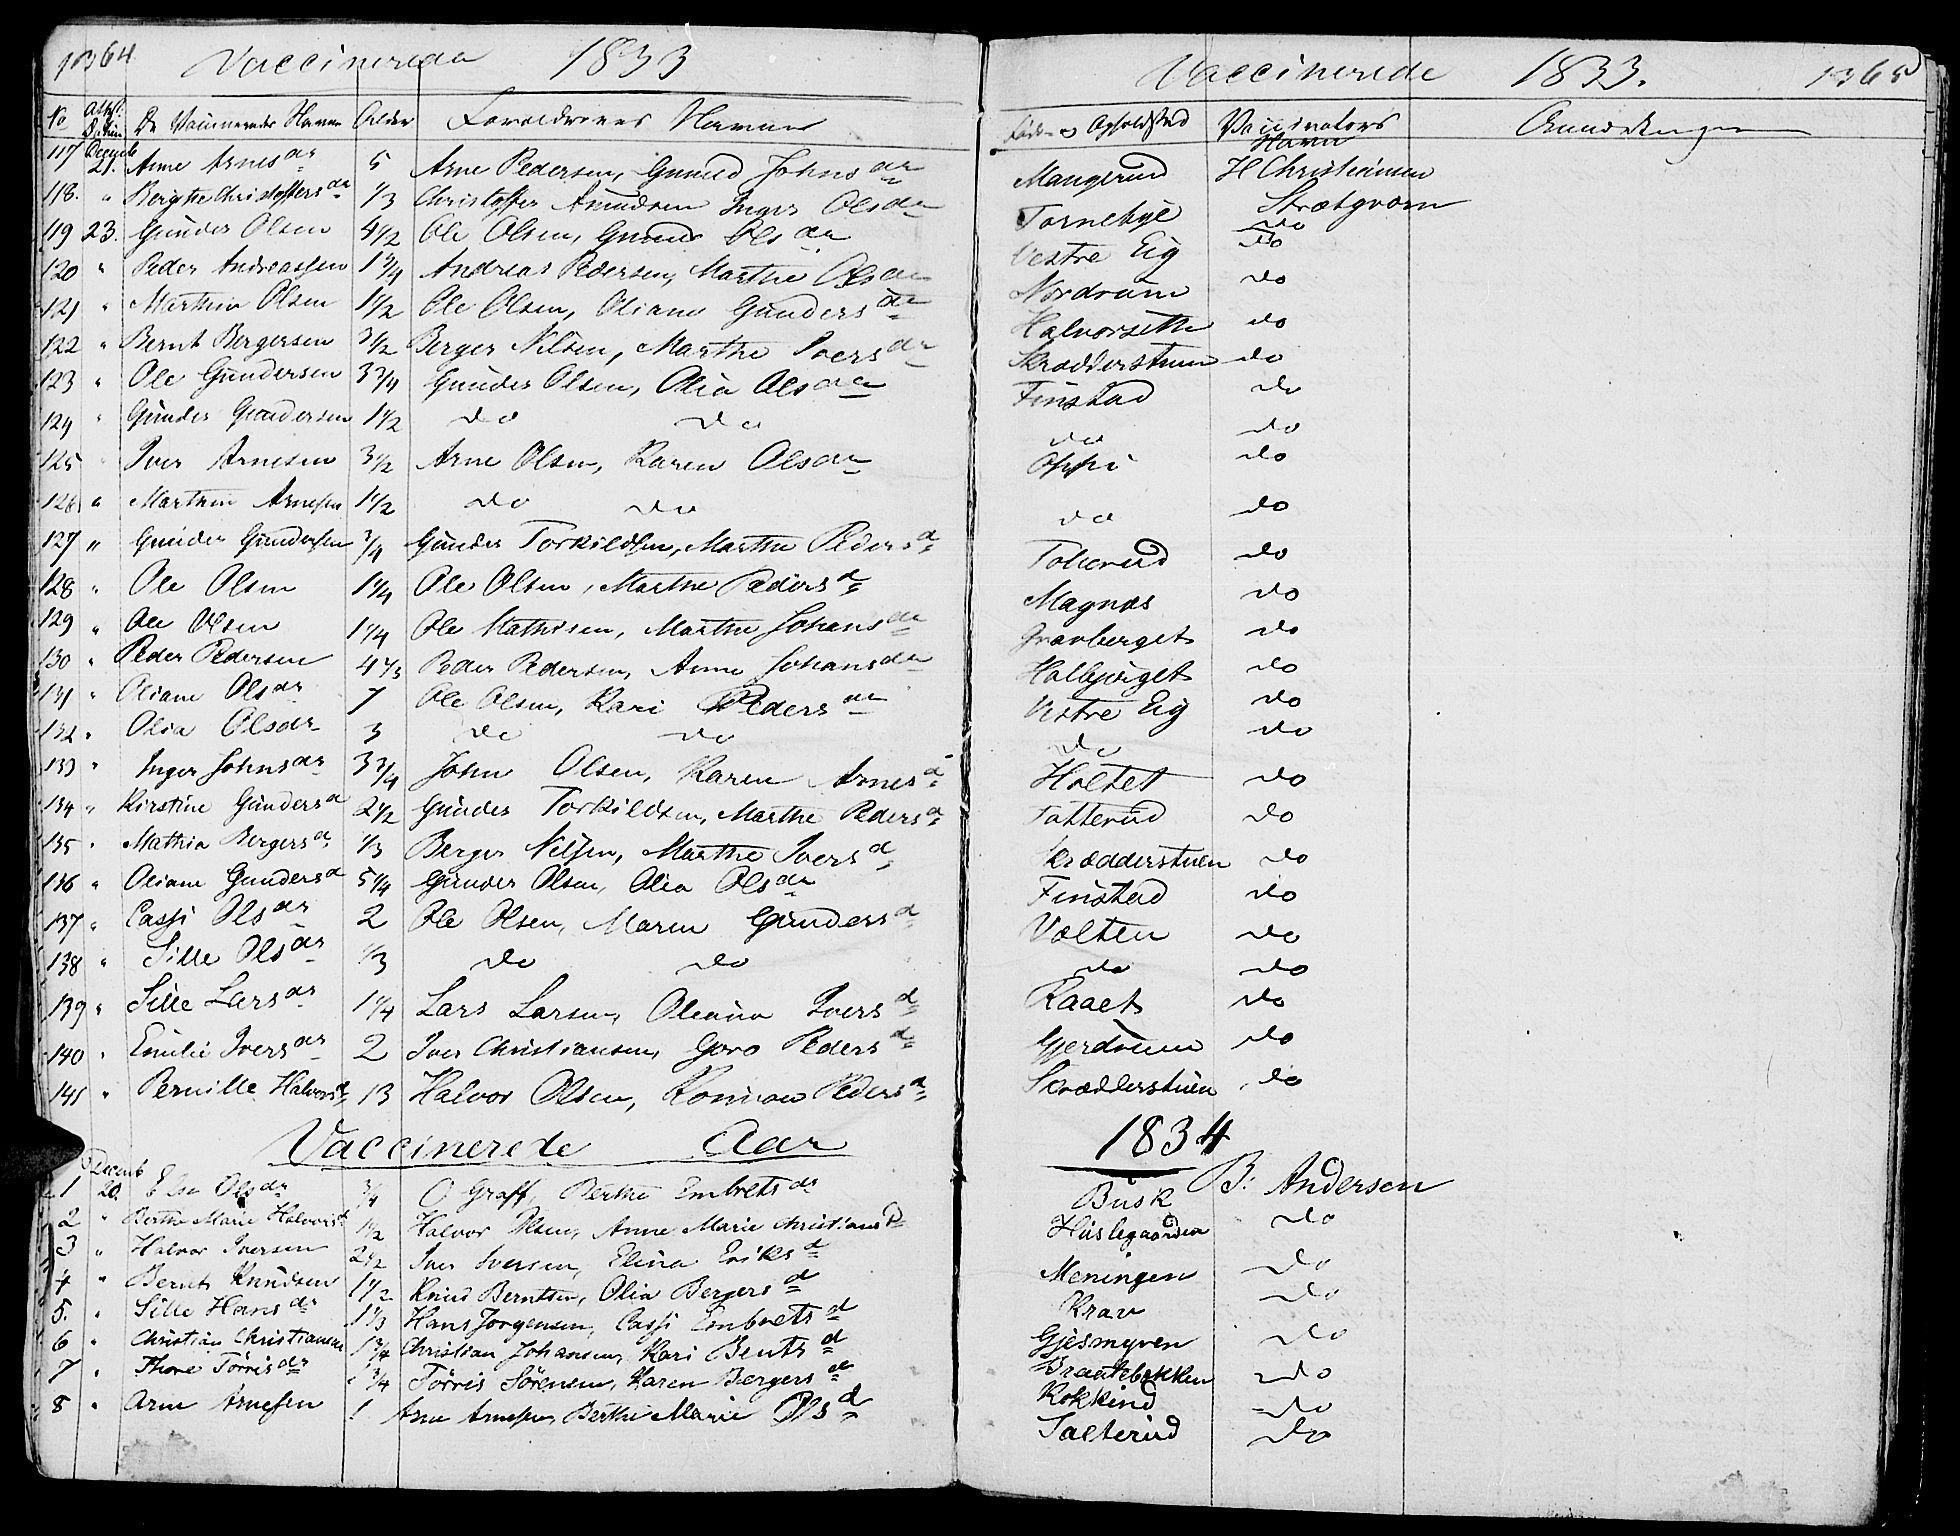 1364 Vaccinerede 1833
No Attest. Datum De Vaccineredes Navne Alder Forældrenes Navne
117 Decemb 21. Anne Arnesdr 5 Arne Pedersen, Gunild Johnsdr
118. " Birgitte Christoffersdr 1/3 Christoffer Amundsen Inger Olsdr
119 23. Gunder Olsen 4 1/2 Ole Olsen, Olsdr
120 " Peder Andreassen 1 3/4 Andreas Pedersen, Marthe Olsdr
121 " Olsen 1 1/2 Ole Olsen, Oliane Gundersdr
122 " Bernt Bergersen 3 1/2 Berger Nilsen, Marthe Iversdr
123 " Ole Gundersen 3 3/4 Gunder Olsen, Olia Olsdr
124 " Gunder Gundersen 1 1/2 do do
125 " Iver Arnesen 3 1/2 Arne Olsen, Karen Olsdr
126 " Arnesen 1 1/2 do do
127 " Gunder Gundersen 3/4 Gunder Torkildsen, Marthe Pedersd
128 " Ole Olsen 1 1/4 Ole Olsen, Marthe Pedersd
129 " Ole Olsen 1 1/4 Ole Mathisen, Marthe Johansdr
130 " Peder Pedersen 4 1/3 Peder Pedersen, Anne Johansdr
131 " Oliane Olsdr 7 Ole Olsen, Kari Pedersdr
132 " Olia Olsdr 3 do do
133 " Inger Johnsdr 3 3/4 John Olsen, Karen Arnesd
134 " Kirstine Gundersd 2 1/2 Gunder Torkildsen, Marthe Pedersd
135 " Mathia Bergersd 1/3 Berger Nilsen, Marthe Iversd
136 " Oliane Gundersd 5 1/4 Gunder Olsen, Olia Olsdr
137 " Cassi Olsdr 2 Ole Olsen, Maren Gundersd
138 " Sille Olsdr 1/3 do do
139 " Sille Larsdr 1 1/4 Lars Larsen, Oleana Iversd
140 " Emilie Iversdr 2 Iver Christiansen, Goro Pedersd
141 " Pernille Halvorsd 13 Halvor Olsen, Pedersd
Vaccinerede Aar
1 Decemb 20. Else Olsdr 3/4 O Graff, Berthe Embretsdr
2 " Berthe Marie Halvorsd 1 1/2 Halvor Olsen, Anne Marie ChristiansD
3 " Halvor Iversen 2 1/2 Iver Iversen, Elina Eriksd
4 " Bernt Knudsen 1 1/2 Knud Berntsen, Olia Bergersd
5. " Sille Hansdr 1 1/3 Hans Jorgensen, Cassi Embretsd
6 " Christian Christiansen 1 3/4 Christian Johansen, Kari Bentsd
7 " Thore Törrisdr 3/4 Törris Sörensen, Karen Bergersdr
8 " Arne Arnesen 1 Arne Arnesen, Berthe Marie Olsd
Vaccinerede 1833. 1365
Føde- og Opholdsted Vaccinators Navn Anmerkninger
Mangerud H Christiansen
Strætqvern
Tornebye do
Vestre Eig do
Nordrum do
Halvorseth do
Skrædderstuen do
Finstad do
do do
Oppi do
do do
do
Magnæs do
Gravberget do
Halbjørget do
Vestre Eig do
do do
Holtet do
Tatterud do
Skrædderstuen do
Finstad do
Volten do
do do
Raaet do
Gjerdrum do
Skrædderstuen do
1834
Busk B: Andersen
Huslegaarden do
Meningen do
Krav do
Gjesmyren do
Braatebækken do
Kokkind do
Salterud do